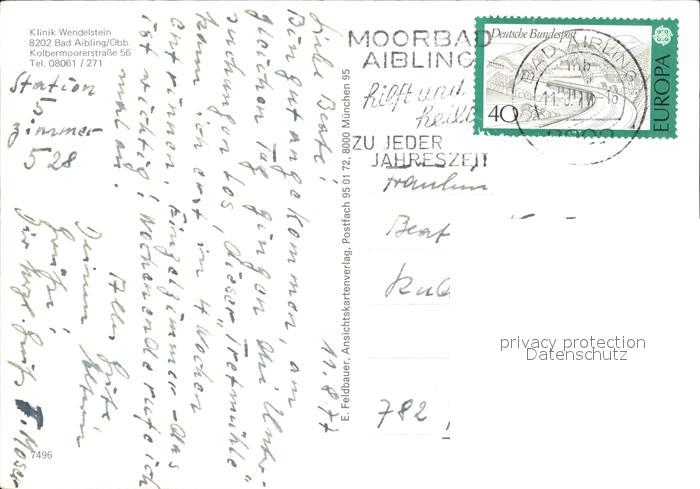 Klinik Wendelstein
8202 Bad Aibling/Obb.
Kolbermoorerstraße 56
Tel. 08061 / 271
Station
5
Zimmer
528
11.8.77
Liebe Beate!
Bin gut angekommen, am
gleichen Tag gingen die Unter-
suchungen los, dieser "Tretmühle"
kann ich erst in 4 Wochen
entrinnen. Einzelzimmer - das
ist wichtig! Wochenende rufe ich
mal an.
Alles Gute
Deinen Eltern
Grüße!
Dir herzl. Grüße
7496
E. Feldbauer, Ansichtskartenverlag, Postfach 95 01 72, 8000 München 95
MOORBAD
AIBLING
hilft und
heilt
ZU JEDER
JAHRESZEIT
Deutsche Bundespost
40
EUROPA
BAD AIBLING
Fräulein
Beat
782
privacy protection
Datenschutz